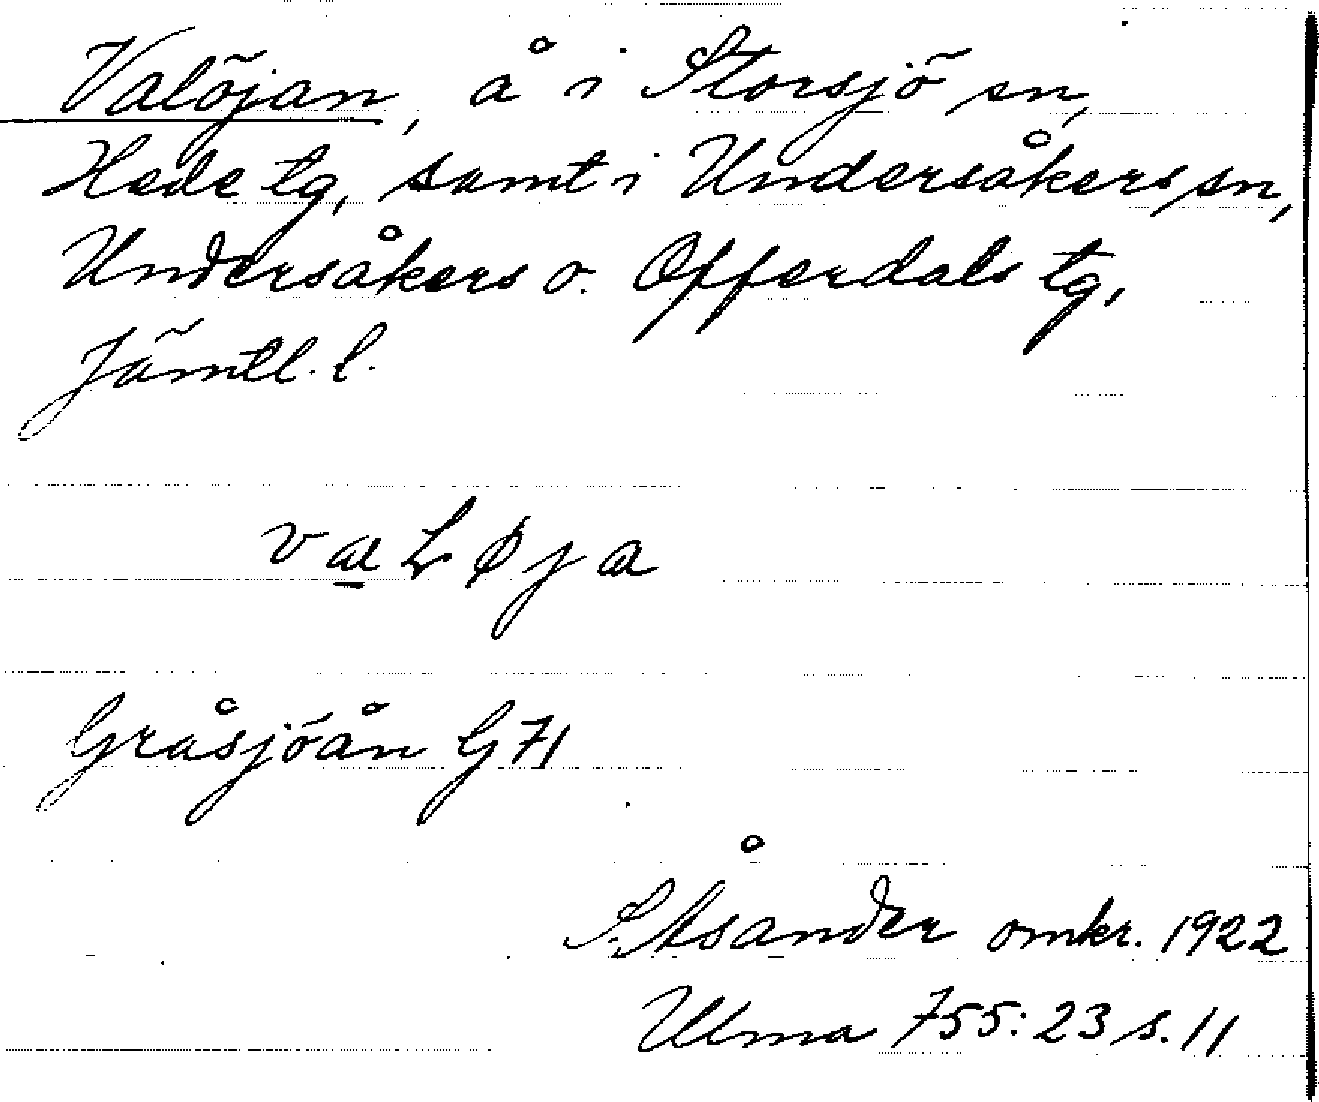 Valöjan, å i Storsjö sn,
Hede tg, samt i Undersåkers sn,
Undersåkers o. Offerdals tg,
Jämtl. l.
væLøja
Gråsjöån G71
S. Åsander omkr. 1922
Ulma 755:23 s. 11